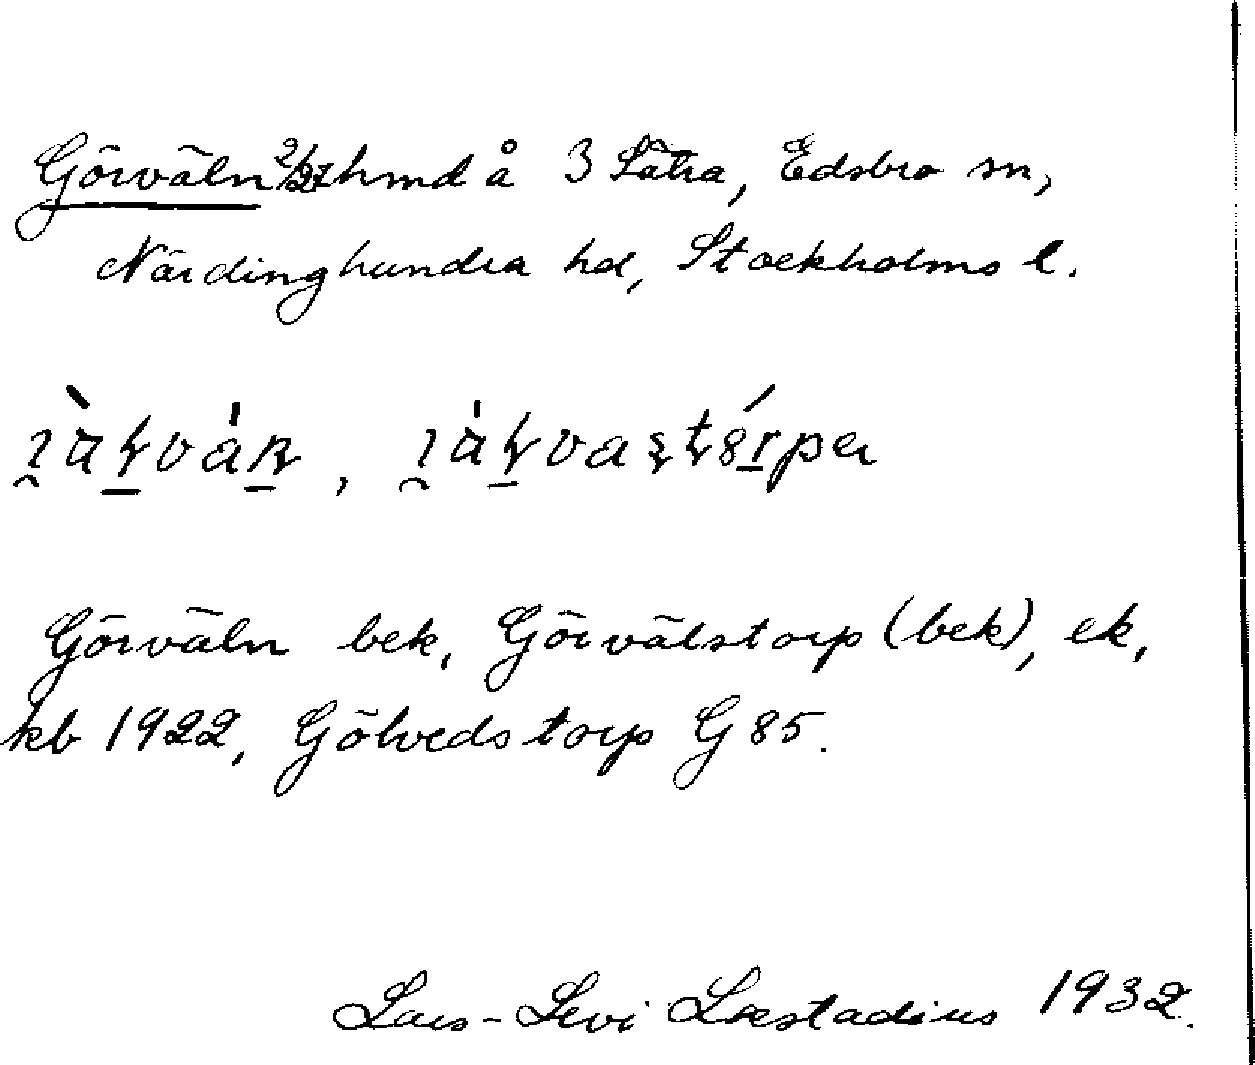 Görväln 2/27 hmd å 3 Sätra, Edsbro sn,
Närdinghundra hd, Stockholms l.
Görväln bek, Görvälstorp (bek), ek,
kb 1922, Gölvedstorp G 85.
Lars-Levi Læstadius 1932.